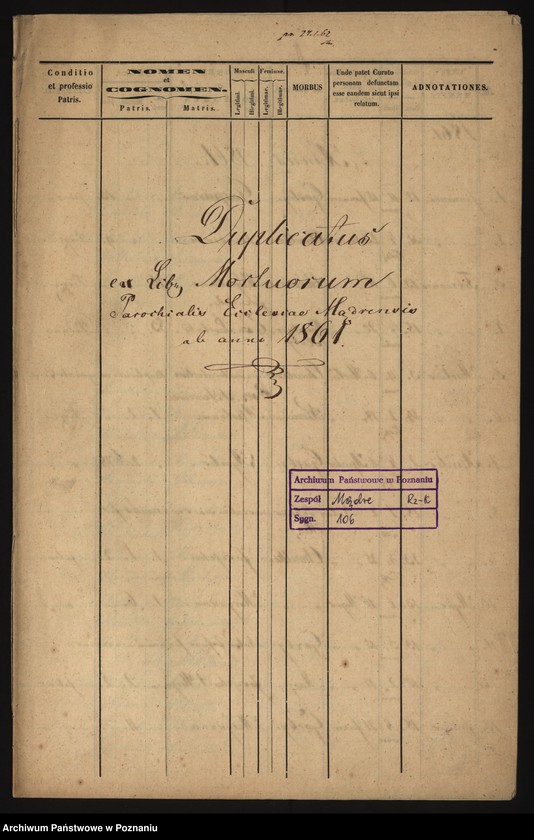 pr. 27.1.62
Conditio
et professio
Patris.
NOMEN
et
COGNOMEN.
Patris.
Matris.
Masculi
Legitimi.
Illegitimi.
Femjnae.
Legitimae.
Illegitimae.
MORBUS
Unde patet Curato
personam defunctam
esse eandem sicut ipsi
relatum.
ADNOTATIONES.
Duplicatus
ex Lib. Mortuorum
Parochialis Ecclesiae Mądrensis
ab anno 1861.
Archiwum Państwowe w Poznaniu
Zespół Mądre Rz-K
Sygn. 106
Archiwum Państwowe w Poznaniu